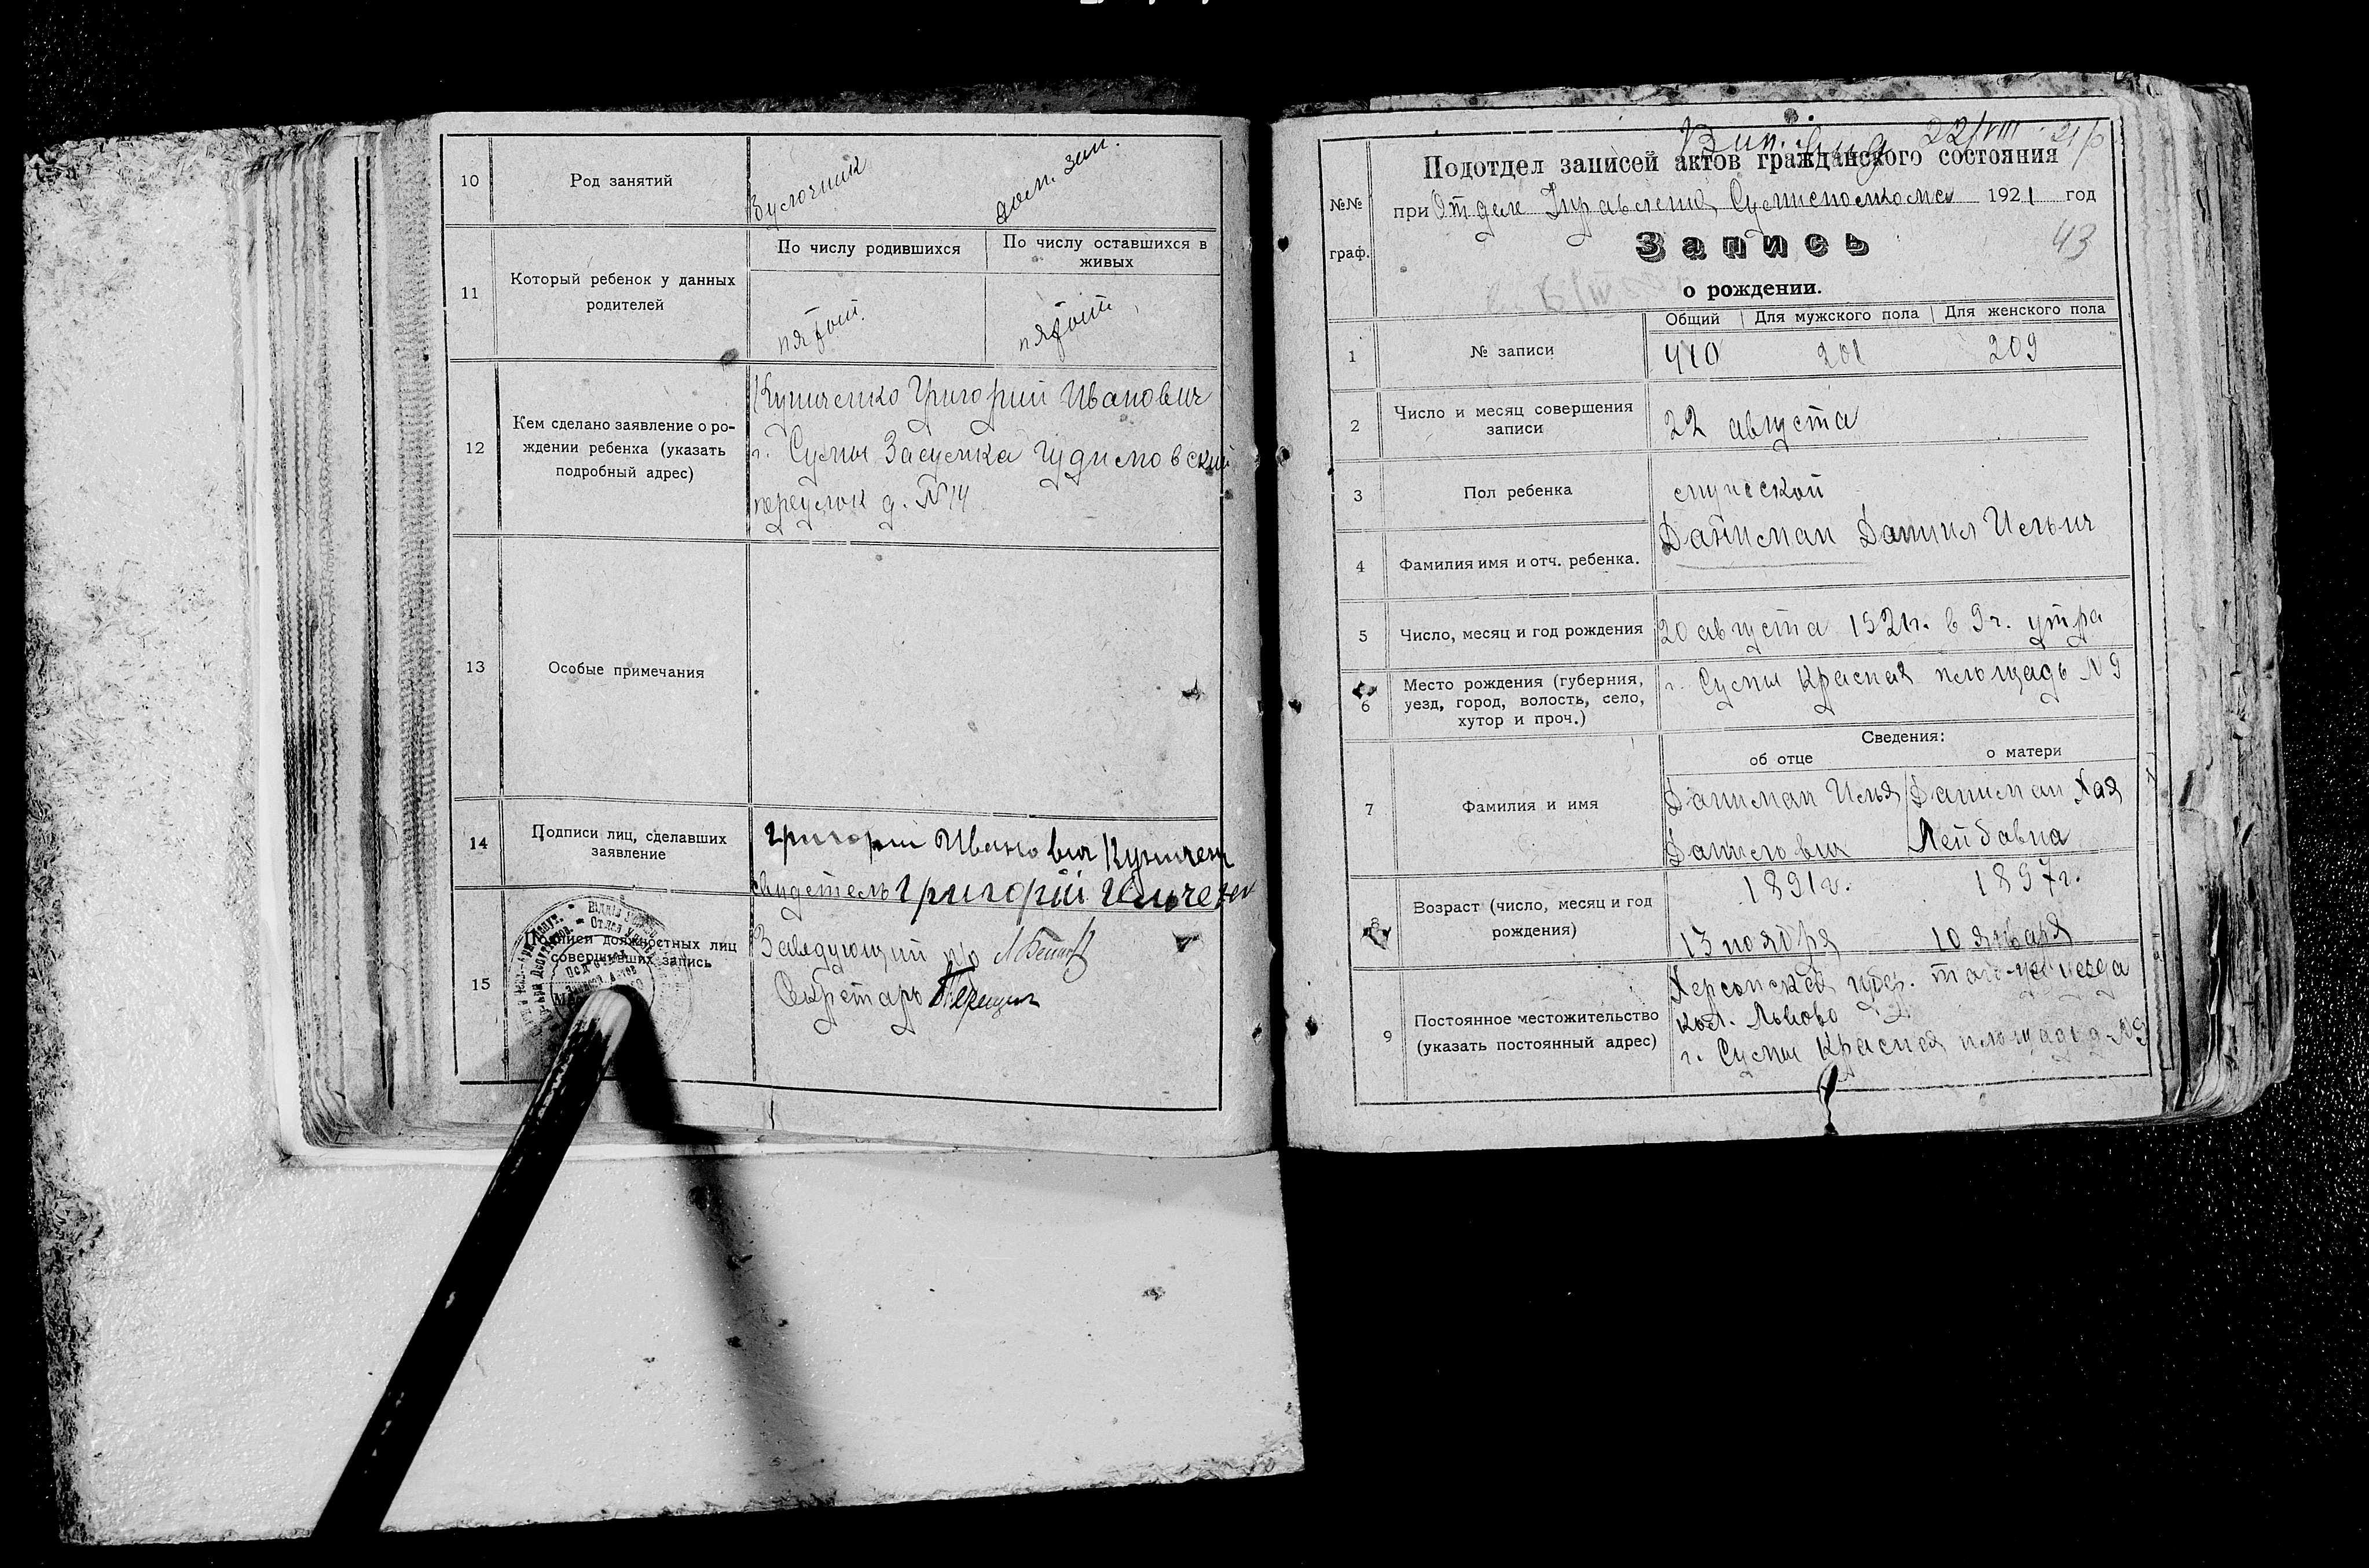 10
Род занятий
Булочник
дом. зан.
11
Который ребенок у данных
родителей
По числу родившихся
По числу оставшихся в
живых
пятой
пятой
12
Кем сделано заявление о ро-
ждении ребенка (указать
подробный адрес)
Григорий Иванович
г. Сумы Засумка Гудимовский
переулок д. №14
13
Особые примечания
14
Подписи лиц, сделавших
заявление
Григорий Иванович
свидетель Григорій
15
Подписи должностных лиц
совершивших запись
Заведующий п/о
Секретарь
22/VIII 21 р
№№
граф.
Подотдел записей актов гражданского состояния
при Отделе Управления Сумисполкома 1921 год
Запись
43
о рождении.
1
№ записи
Общий
Для мужского пола
Для женского пола
410
201
209
2
Число и месяц совершения
записи
22 августа
3
Пол ребенка
мужской
4
Фамилия имя и отч. ребенка.
Данцман Даниил Ильич
5
Число, месяц и год рождения
20 августа 1921г. в 9 ч. утра
6
Место рождения (губерния,
уезд, город, волость, село,
хутор и проч.)
г. Сумы Красная площадь №9
Сведения:
об отце
о матери
7
Фамилия и имя
Данцман Илья
Данилович
Данцман Хая
Лейбовна
8
Возраст (число, месяц и год
рождения)
1891г.
13 ноября
1897г.
10 января
9
Постоянное местожительство
(указать постоянный адрес)
Херсонская губ. уезда
кол. Львово
г. Сумы Красная площадь д. №9